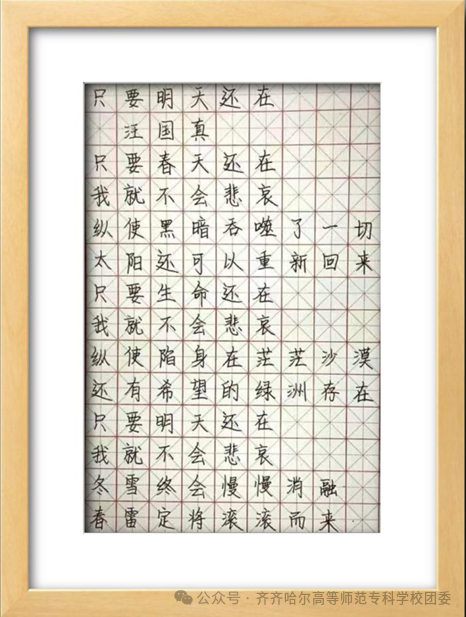 只要明天还在
汪国真
只要春天还在
我就不会悲哀
纵使黑暗吞噬了一切
太阳还可以重新回来
只要生命还在
我就不会悲哀
纵使陷身在茫茫沙漠
还有希望的绿洲存在
只要明天还在
我就不会悲哀
冬雪终会慢慢消融
春雷定将滚滚而来
公众号·齐齐哈尔高等师范专科学校团委